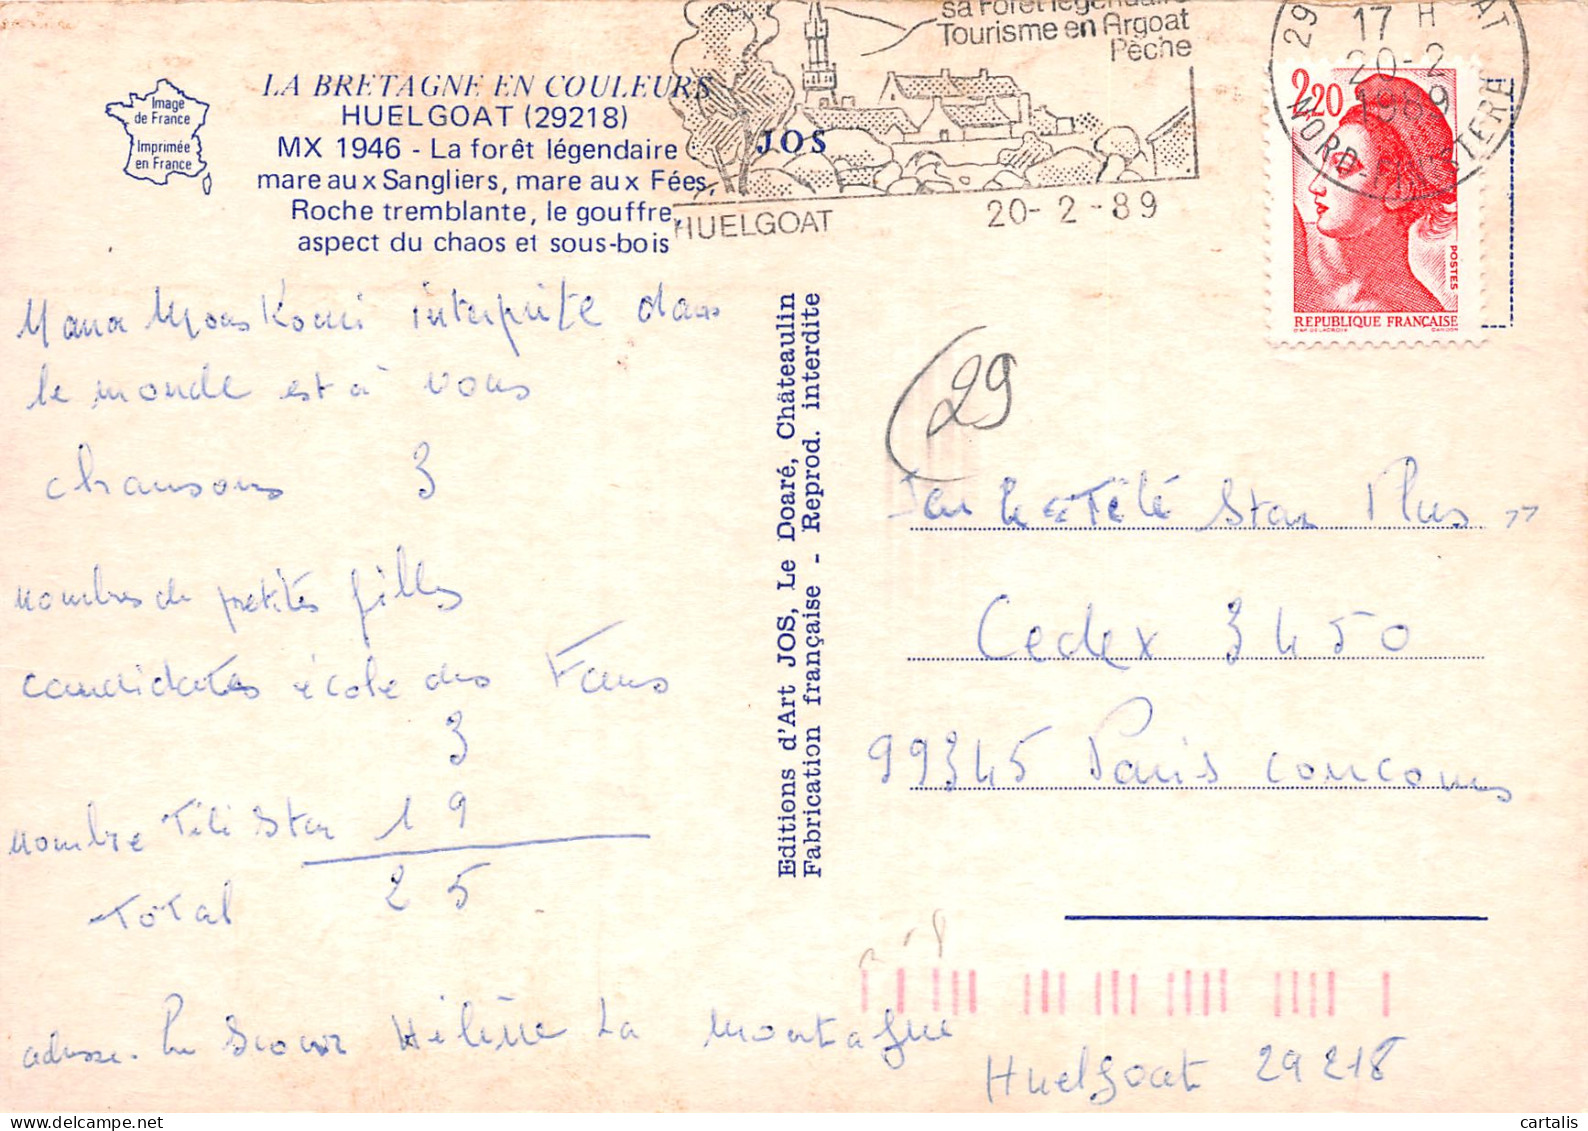 sa Forêt légendaire
Tourisme en Argoat
Pêche
HUELGOAT
20-2-89
29
17 H
20-2
1989
NORD-FINISTERE
2,20
POSTES
REPUBLIQUE FRANÇAISE
Image
de France
Imprimée
en France
LA BRETAGNE EN COULEURS
HUELGOAT (29218)
MX 1946 - La forêt légendaire
mare aux Sangliers, mare aux Fées,
Roche tremblante, le gouffre,
aspect du chaos et sous-bois
JOS
Editions d'Art JOS, Le Doaré, Châteaulin
Fabrication française - Reprod. interdite
Nana Mouskouri interprète dans
le monde est à vous
chansons 3
nombres de petites filles
candidates école des Fans
3
nombre Télé Star 19
Total 25
adresse. Hélène La Montagne
Huelgoat 29218
(29
Télé Star Plus
Cedex 3450
99345 Paris concours